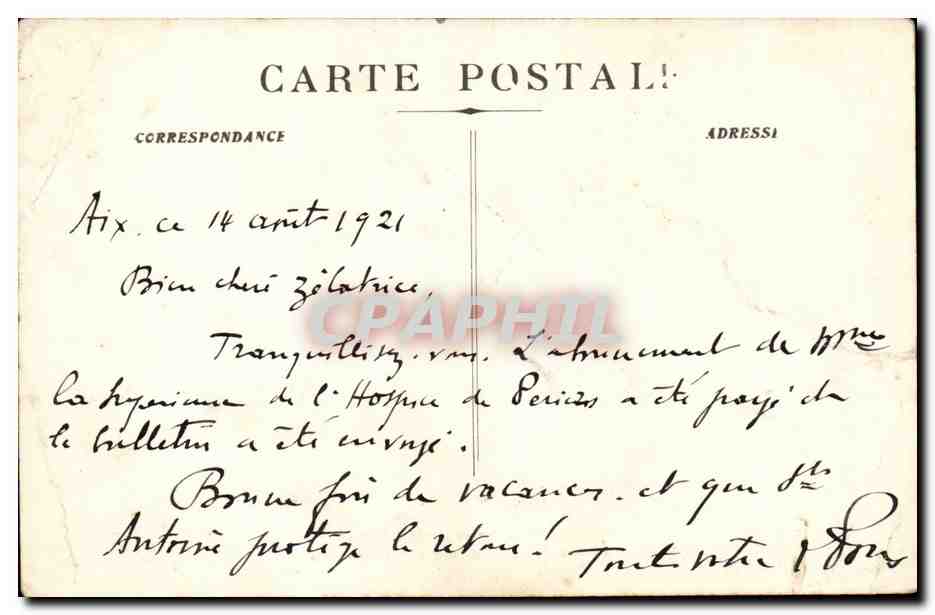 CARTE POSTALE
CORRESPONDANCE
ADRESSE
Aix. ce 14 août 1921
Bien chère zélatrice,
CPAPHIL
Tranquillisez-vous. L'abonnement de Mme
la Supérieure de l'Hospice de a été payé et
le bulletin a été envoyé.
Bonne fin de vacances. et que St
Antoine protège le retour!
Tout vôtre